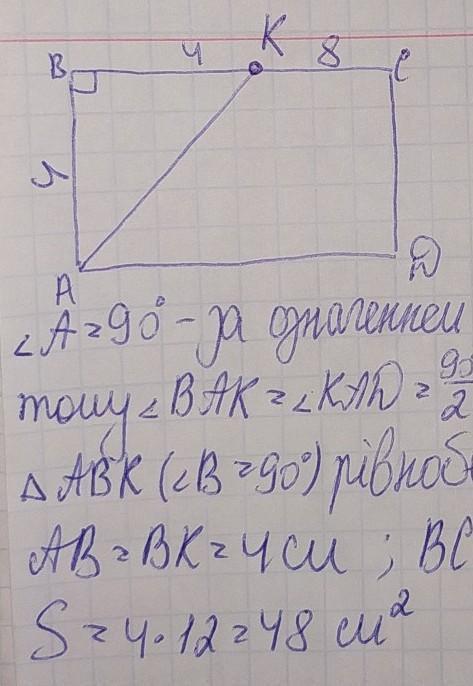 4 K 8
B C
4
A D
∠A = 90° – за означенней
тому ∠BAK = ∠KAD = 90/2
△ABK (∠B = 90°) рівноб
AB = BK = 4 см ; BC
S = 4 · 12 = 48 см²